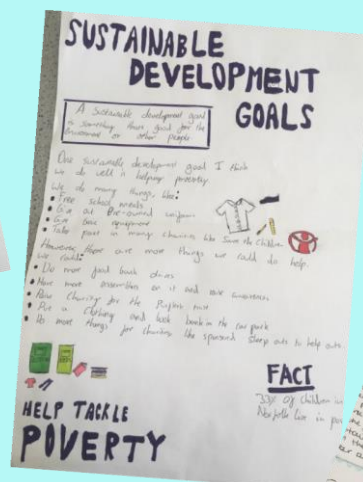 SUSTAINABLE
DEVELOPMENT
GOALS
A sustainable development goal
is something thats good for the
environment or other people
One sustainable development goal I think
we do well is helping poverty
We do many things, like:
• Free school meals
• Give out Pre-owned uniform
• Give basic equipment
• Take part in many charities like Save the Children
However, there are more things we could do help.
We could:
• Do more food bank drives
• Have more assemblies on it and raise awareness
• Raise charity for the
• Put a clothing and book bank in the car park
• Do more things for charities like sponsored sleep outs to help out.
FACT
33% of children in
Norfolk live in
HELP TACKLE
POVERTY